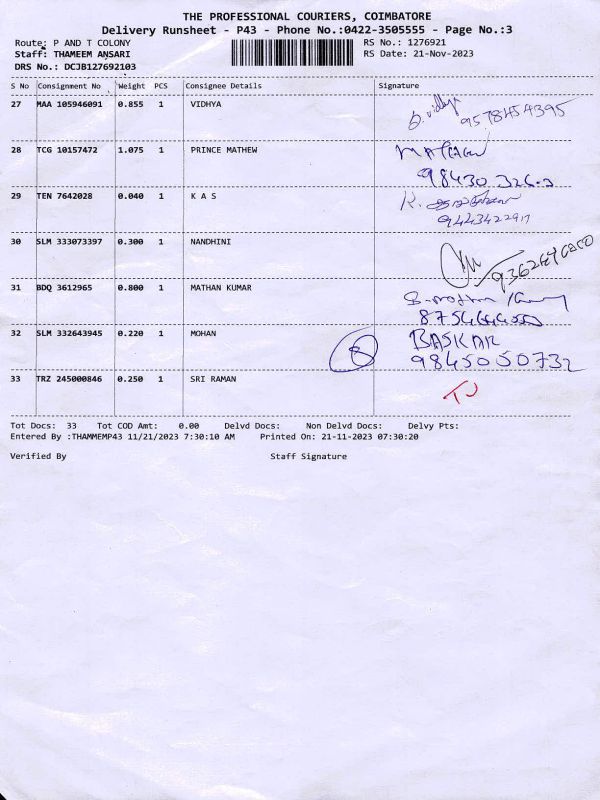 THE PROFESSIONAL COURIERS, COIMBATORE
Delivery Runsheet - P43 - Phone No.:0422-3505555 - Page No.:3
Route: P AND T COLONY RS No.: 1276921
Staff: THAMEEM ANSARI RS Date: 21-Nov-2023
DRS No.: DCJB127692103
S No Consignment No Weight PCS Consignee Details Signature
27 MAA 105946091 0.855 1 VIDHYA 9578454395
28 TCG 10157472 1.075 1 PRINCE MATHEW
29 TEN 7642028 0.040 1 K A S
9443422917
30 SLM 333073397 0.300 1 NANDHINI
31 BDQ 3612965 0.800 1 MATHAN KUMAR
32 SLM 332643945 0.220 1 MOHAN 8 BASKAR
9845050732
33 TRZ 245000846 0.250 1 SRI RAMAN
Tot Docs: 33 Tot COD Amt: 0.00 Delvd Docs: Non Delvd Docs: Delvy Pts:
Entered By :THAMMEMP43 11/21/2023 7:30:10 AM Printed On: 21-11-2023 07:30:20
Verified By Staff Signature